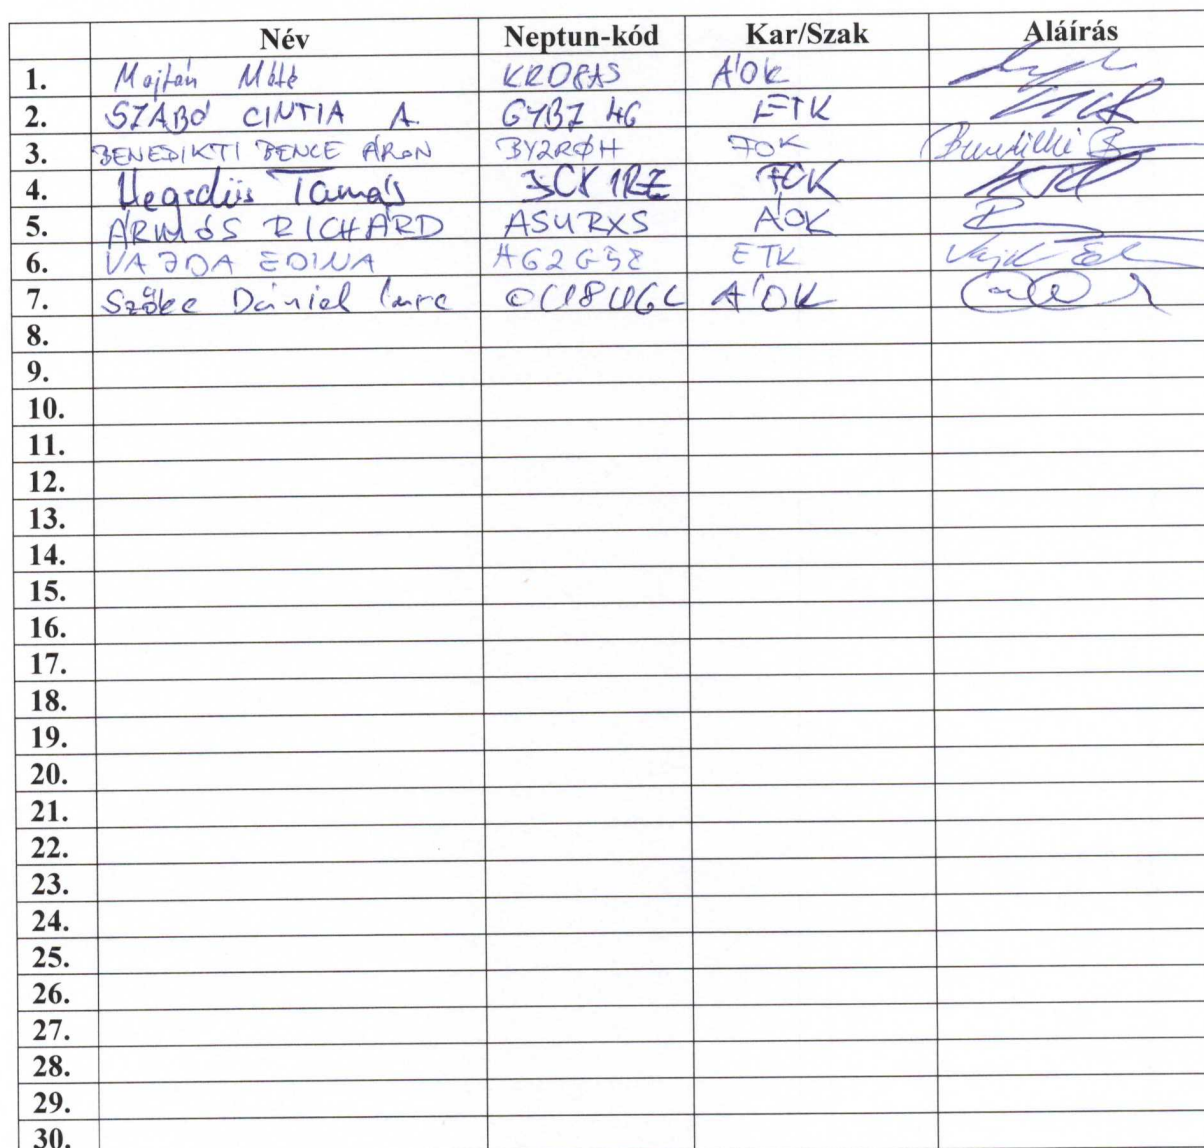 Név Neptun-kód Kar/Szak Aláírás
1. Majtán Máté KRO8AS ÁOK
2. SZABÓ CINTIA A. GYBZ4G ETK
3. BENEDIKTI BENCE ÁRON BY2RØH FOK Benedikti B
4. Hegedűs Tamás 3CK1RZ FOK
5. ÁRMÓS RICHÁRD ASURXS ÁOK
6. VAJDA EDINA ETK
7. Szőke Dániel Imre ÁOK
8.
9.
10.
11.
12.
13.
14.
15.
16.
17.
18.
19.
20.
21.
22.
23.
24.
25.
26.
27.
28.
29.
30.